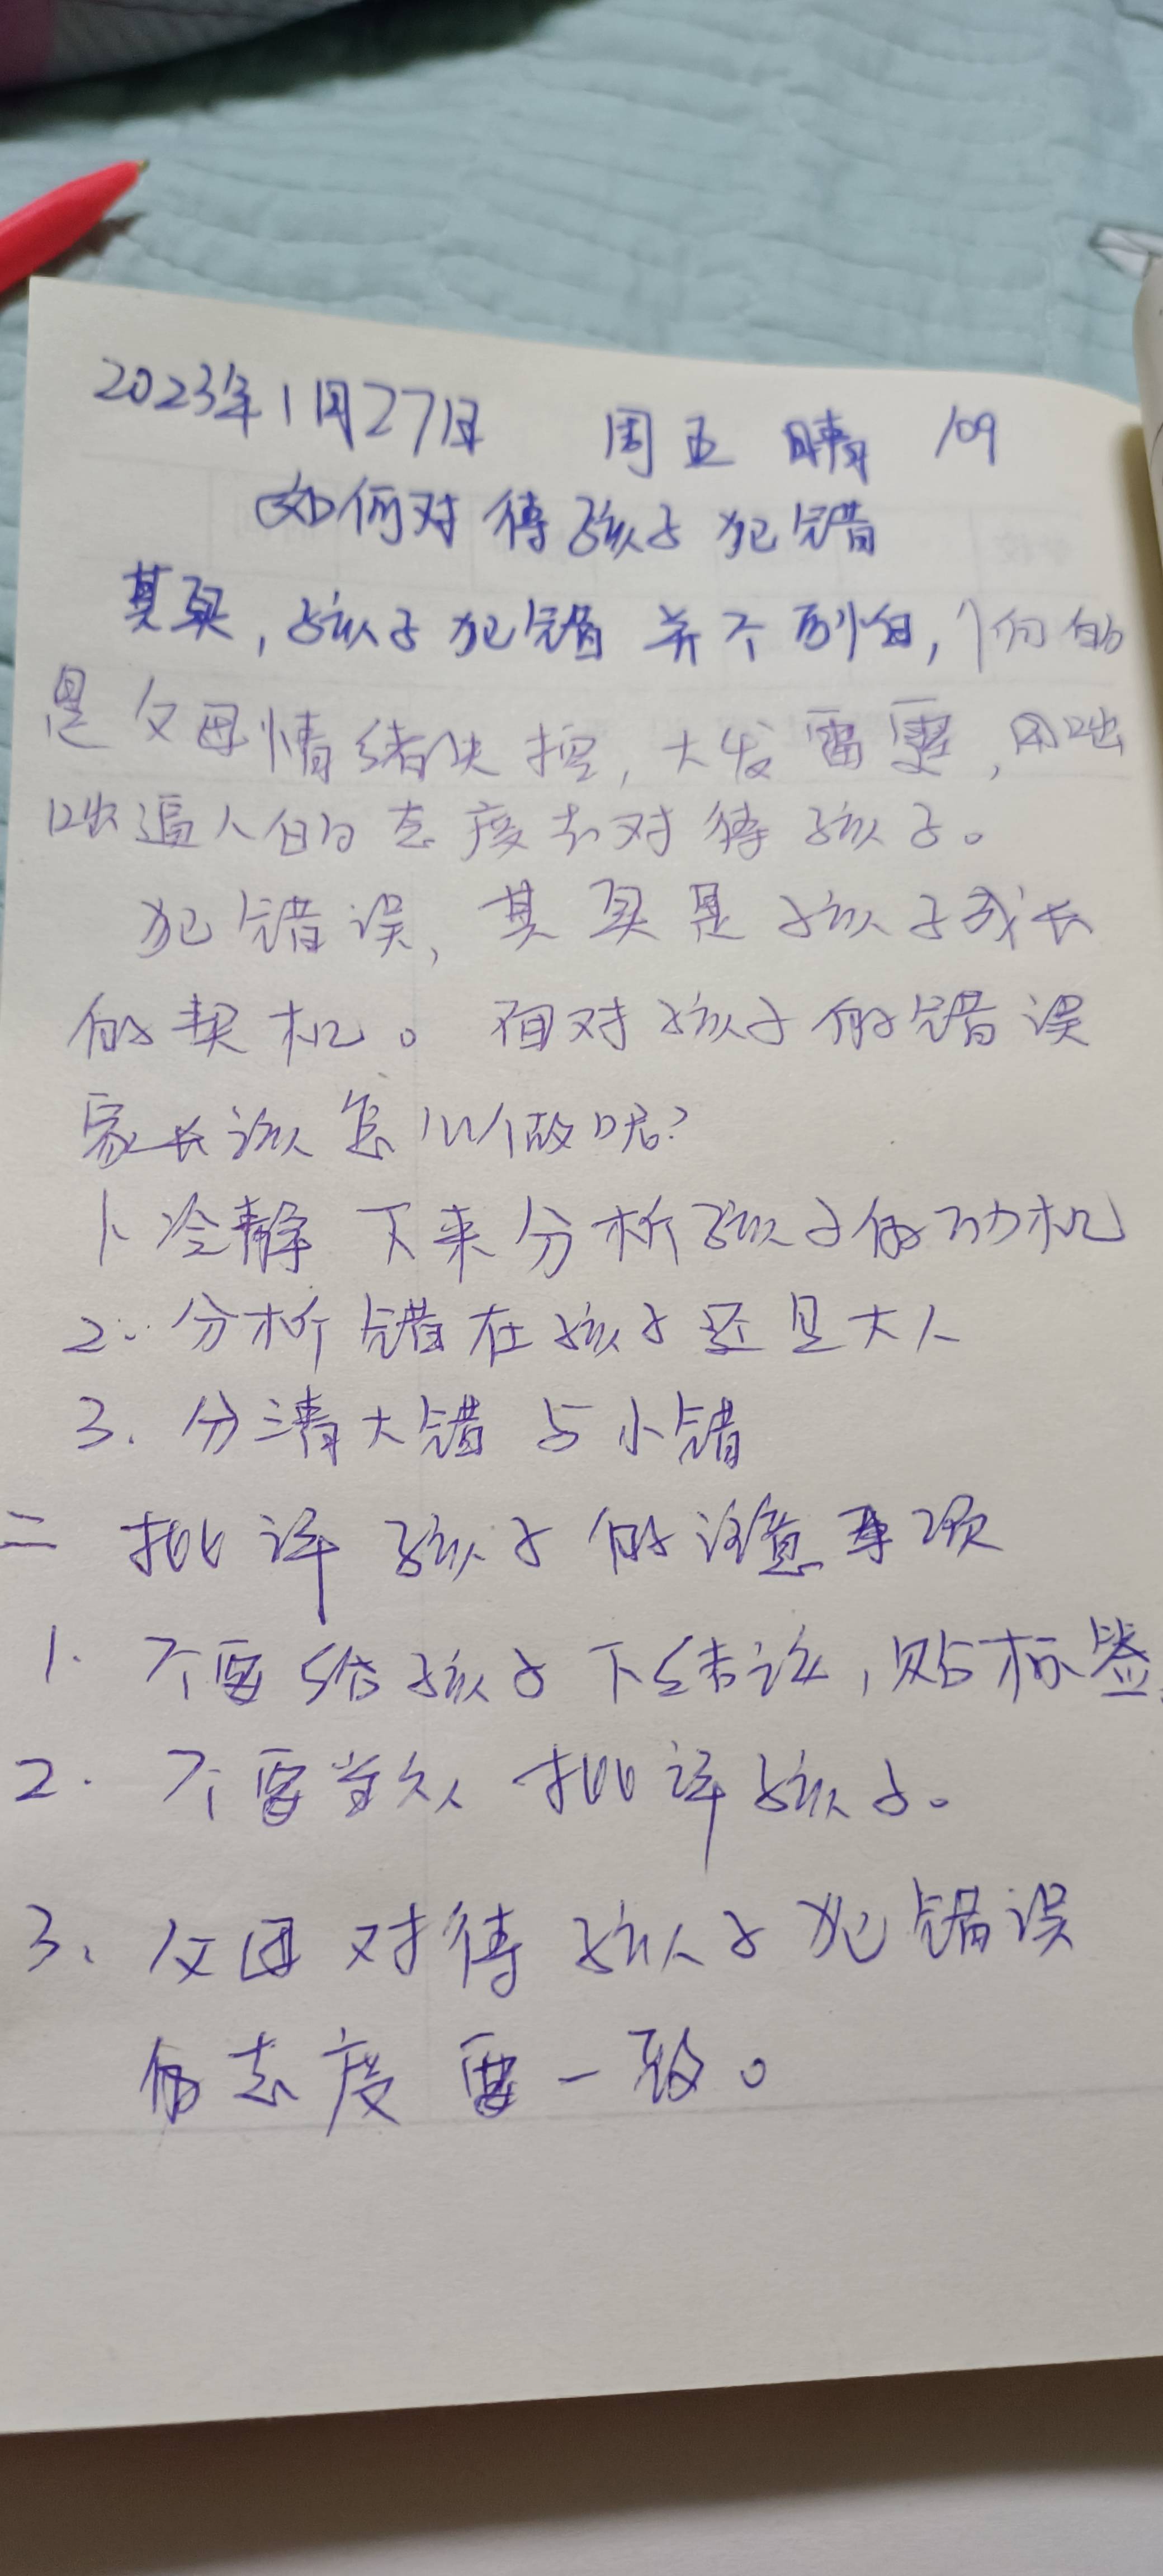 2023年1月27日 周五 晴 109
如何对待孩子犯错
其实,孩子犯错并不可怕,怕的
是父母情绪失控,大发雷霆,用咄
咄逼人的态度去对待孩子。
犯错误,其实是孩子成长
的契机。面对孩子的错误
家长该怎么做呢?
1、冷静下来分析孩子的动机
2. 分析错在孩子还是大人
3. 分清大错与小错
二 批评孩子的注意事项
1. 不要给孩子下结论,贴标签
2. 不要当众人批评孩子。
3、父母对待孩子犯错误
的态度要一致。